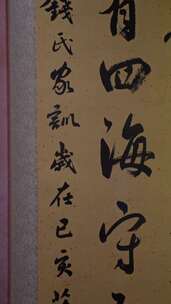 有四海守
錢氏家訓歲在己亥